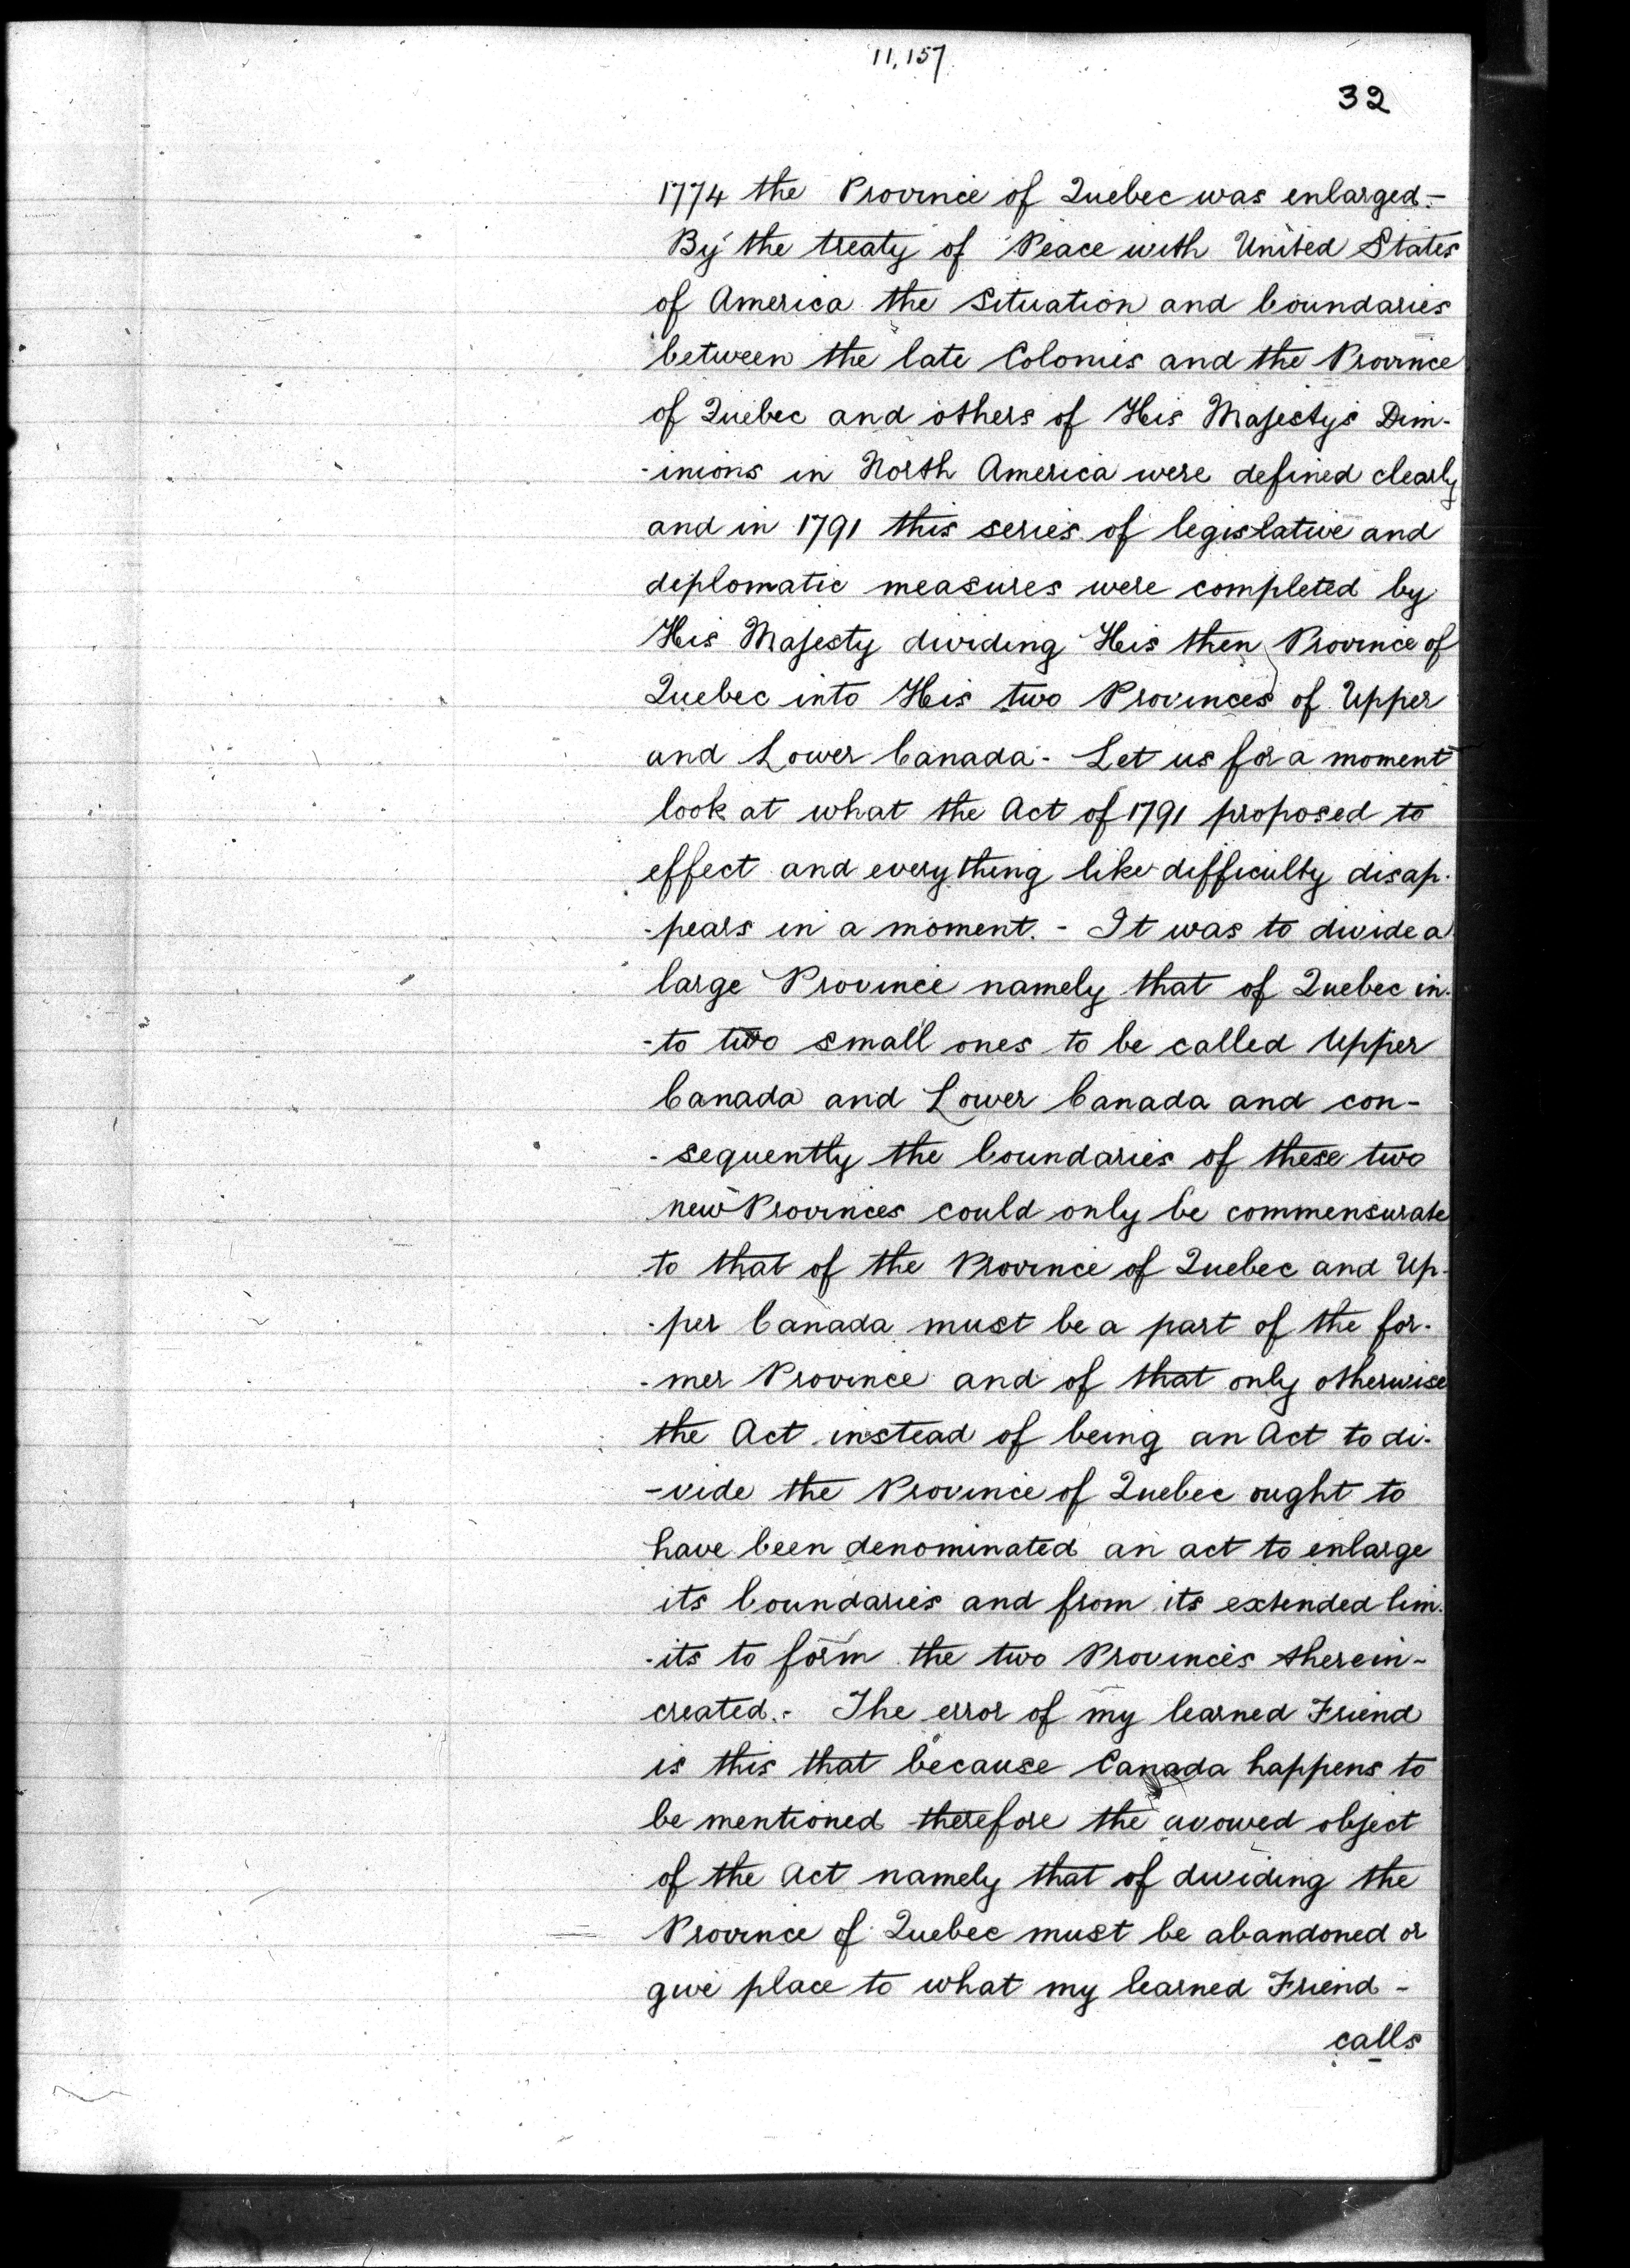 11,157
32
1774 the Province of Quebec was enlarged.-
By the treaty of Peace with United States
of America the situation and boundaries
between the late Colonies and the Province
of Quebec and others of His Majesty's Dim-
-inions in North America were defined clearly
and in 1791 this series of legislative and
diplomatic measures were completed by
His Majesty dividing His then Province of
Quebec into His two Provinces of Upper
and Lower Canada - Let us for a moment
look at what the Act of 1791 proposed to
effect and everything like difficulty disap-
-pears in a moment. - It was to divide a
large Province namely that of Quebec in-
-to two small ones to be called Upper
Canada and Lower Canada and con-
-sequently the boundaries of these two
new Provinces could only be commensurate
to that of the Province of Quebec and Up-
-per Canada must be a part of the for-
-mer Province and of that only otherwise
the Act instead of being an Act to di-
-vide the Province of Quebec ought to
have been denominated an act to enlarge
its boundaries and from its extended lim-
-its to form the two Provinces therein-
created. - The error of my learned Friend
is this that because Canada happens to
be mentioned therefore the avowed object
of the Act namely that of dividing the
Province of Quebec must be abandoned or
give place to what my learned Friend -
calls